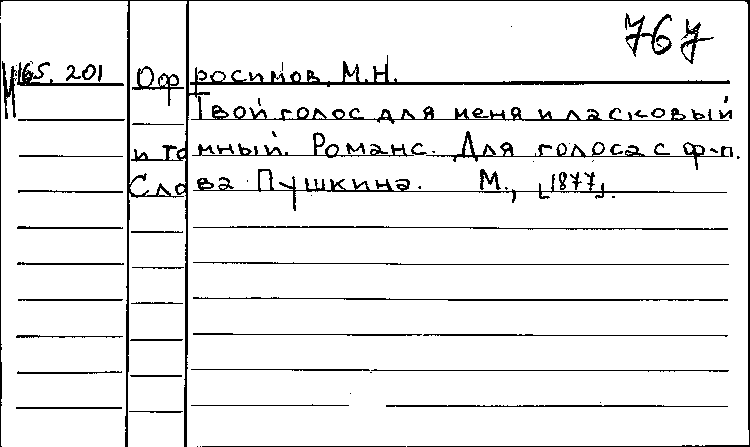 767
М165.201 Офросимов, М.Н.
Твой голос для меня и ласковый
и томный. Романс. Для голоса с ф-п.
Слова Пушкина. М., [1877].